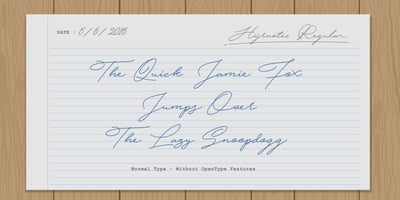 DATE : 5/5/2015
Hijrnotes Regular
The Quick Jamie Fox
Jumps Over
The Lazy Snoopdogg
Normal Type - Without OpenType Features